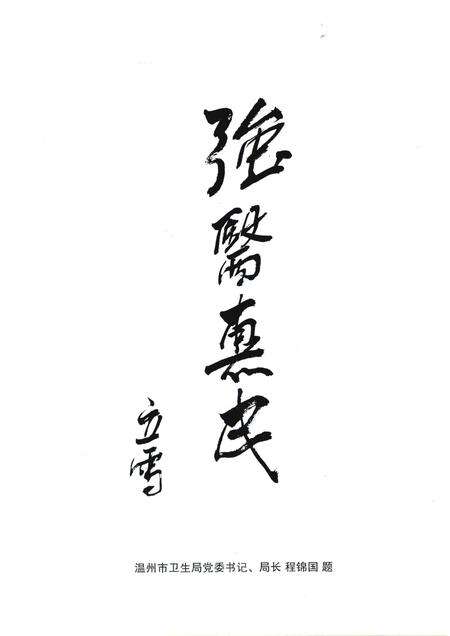 強醫惠民
立雪
温州市卫生局党委书记、局长 程锦国 题